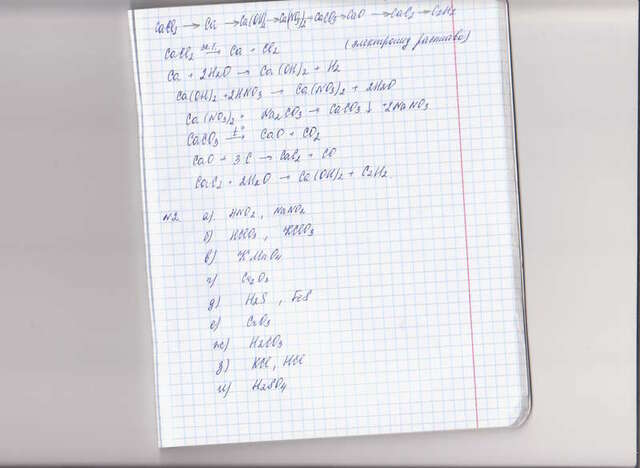 CaCl2 → Ca → Ca(OH)2 → Ca(NO3)2 → CaCO3 → CaO → CaC2 → C2H2
CaCl2 эл.т. → Ca + Cl2 (электролиз расплава)
Ca + 2H2O → Ca(OH)2 + H2
Ca(OH)2 + 2HNO3 → Ca(NO3)2 + 2H2O
Ca(NO3)2 + Na2CO3 → CaCO3↓ + 2NaNO3
CaCO3 t° → CaO + CO2
CaO + 3C → CaC2 + CO
CaC2 + 2H2O → Ca(OH)2 + C2H2
№2 а) HNO2, NaNO2
б) HClO3, KClO3
в) KMnO4
г)
д) H2S, FeS
е) CrO3
ж) H2CO3
з) KCl, HCl
и) H2SO4